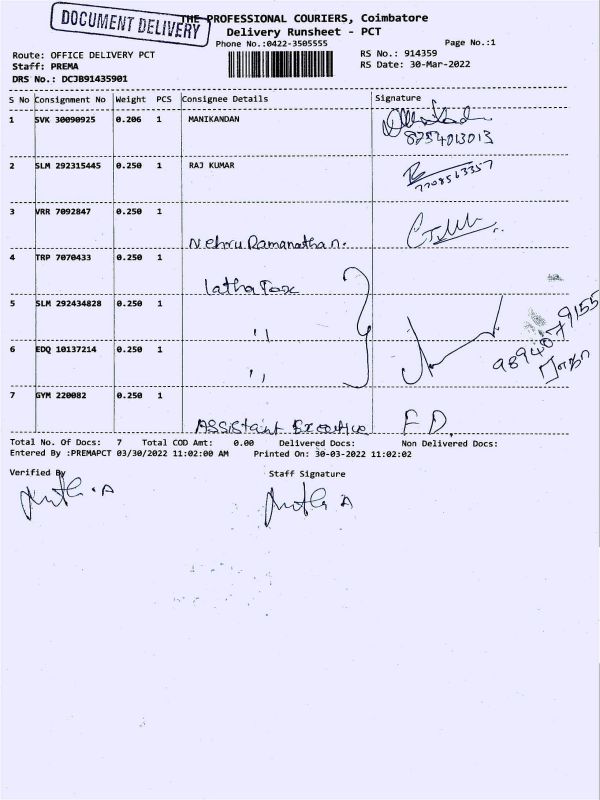 DOCUMENT DELIVERY
THE PROFESSIONAL COURIERS, Coimbatore
Delivery Runsheet - PCT
Phone No.:0422-3505555
Page No.:1
Route: OFFICE DELIVERY PCT
RS No.: 914359
Staff: PREMA
RS Date: 30-Mar-2022
DRS No.: DCJB91435901
S No Consignment No Weight PCS Consignee Details Signature
1 SVK 30090925 0.206 1 MANIKANDAN
8754013013
2 SLM 292315445 0.250 1 RAJ KUMAR
7708563357
3 VRR 7092847 0.250 1
Nehru Ramanathan.
4 TRP 7070433 0.250 1
Latha Tax
5 SLM 292434828 0.250 1
"
9894079155
6 EDQ 10137214 0.250 1
"
7 GYM 220082 0.250 1
Assistaint Executive F D.
Total No. Of Docs: 7 Total COD Amt: 0.00 Delivered Docs: Non Delivered Docs:
Entered By :PREMAPCT 03/30/2022 11:02:00 AM Printed On: 30-03-2022 11:02:02
Verified By Staff Signature